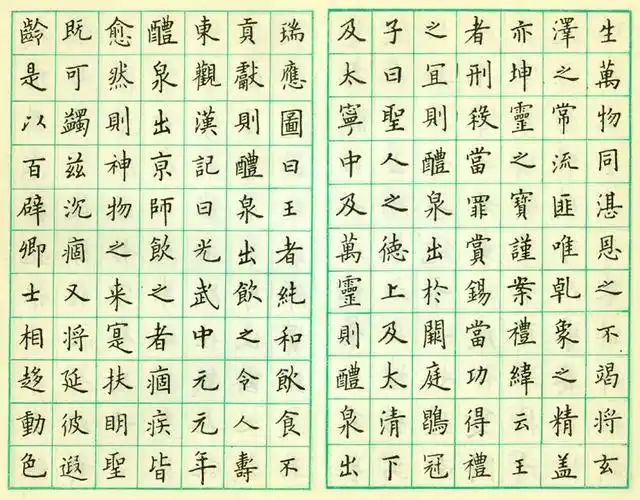 生萬物同湛恩之不竭將玄
澤之常流匪唯乹象之精盖
亦坤靈之寶謹案禮緯云王
者刑殺當罪賞錫當功得禮
之宜則醴泉出於闕庭鶡冠
子曰聖人之徳上及太清下
及太寧中及萬靈則醴泉出
瑞應圖曰王者純和飲食不
貢獻則醴泉出飲之令人壽
東觀漢記曰光武中元元年
醴泉出京師飲之者痼疾皆
愈然則神物之来寔扶明聖
既可蠲茲沉痼又将延彼遐
齡是以百辟卿士相趍動色